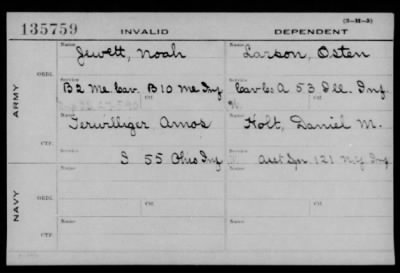 (3-M-3)
135759 INVALID DEPENDENT
Name Name
Jewett, Noah Larson, Osten
ORIG.
Service Service
B 2 Me. Cav. B 10 Me Inf Cav Co. A 53 Ill. Inf.
Ctf. Ctf.
ARMY
Name Name
Terwilliger Amos Holt, Daniel M.
CTF.
Service
55 Ohio Inf Asst Sur. 121 N.Y. Inf
NAVY
Name Name
ORIG.
Service Service
Ctf. Ctf.
Name Name
CTF.
Service Service